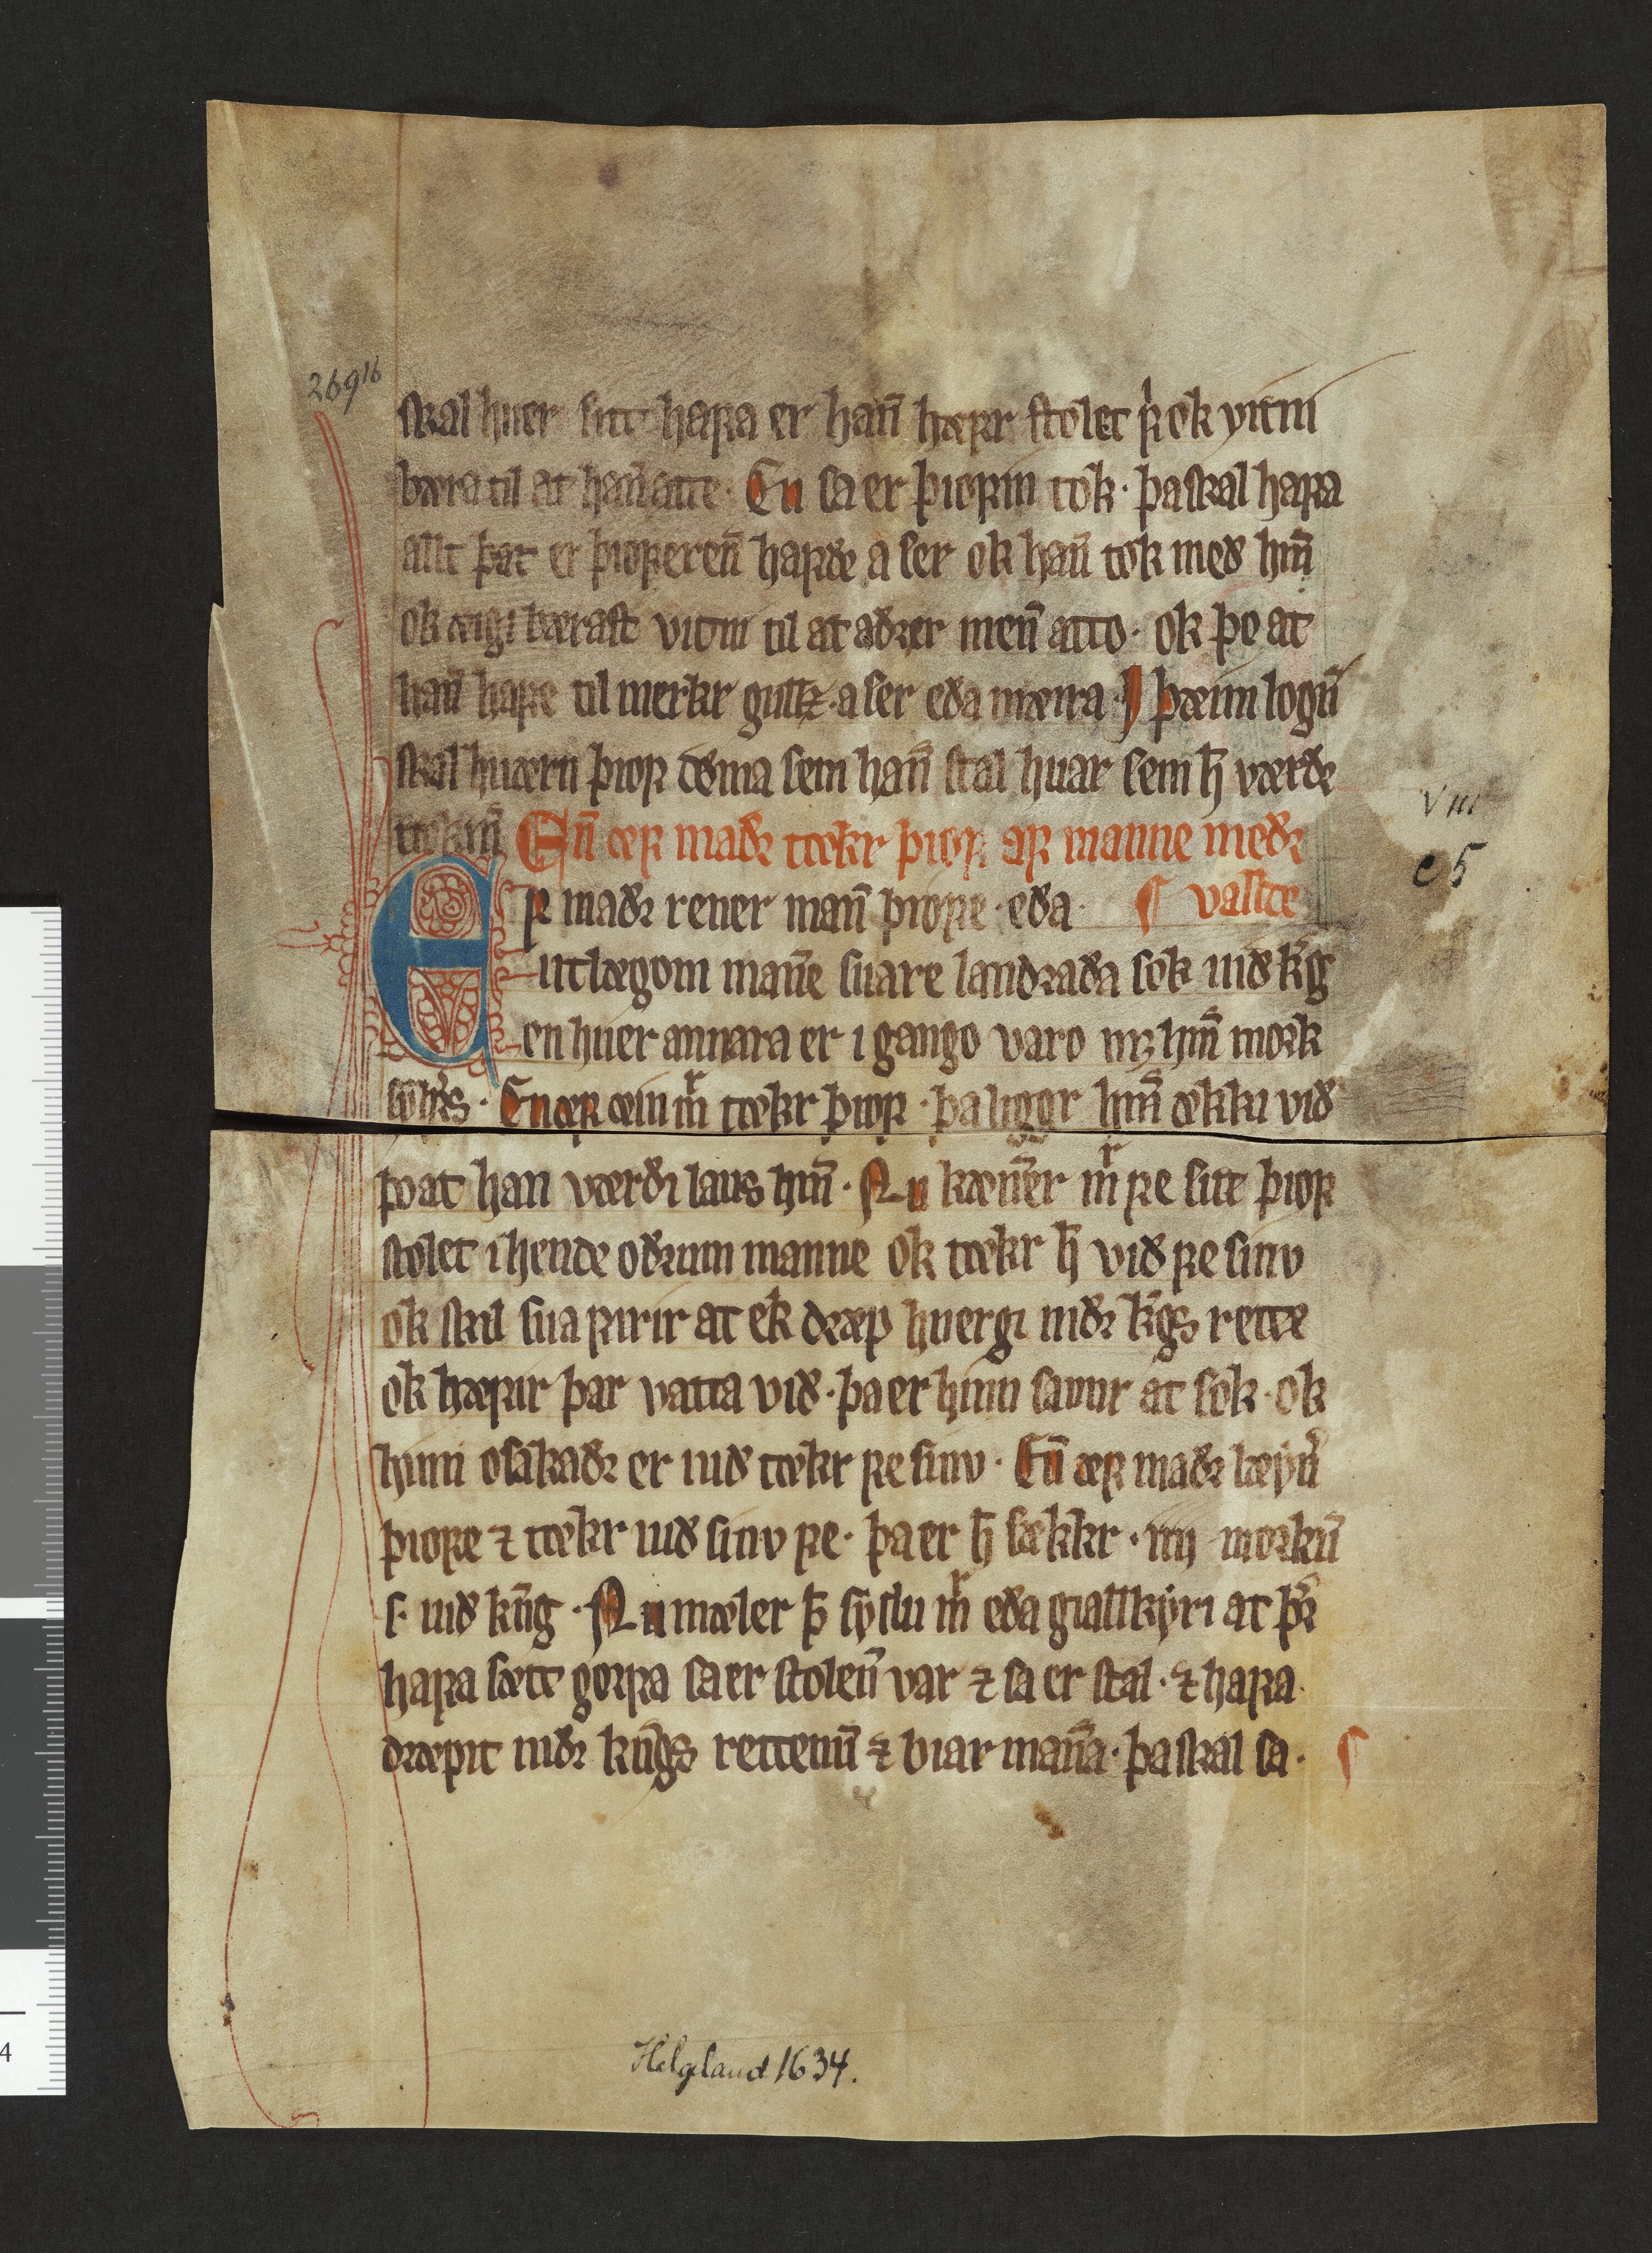 269 16
skal huer sitt hafa er han̄ hæfir stolet f̓i ok vitni
bæra til at han̄ atte · En sa er þiofin tok · þa skal hafa
allt þat er þioferen̄ hafðe a ser ok han̄ tok með hm̄
ok æigi bærast vitni til at aðrer men̄ atto · ok þo at
han̄ hafe til merkr gullz · a ser eða mæira · J þæim logū
skal huærn þiof dœma sem han̄ stal huar sem h̄ værðr
En̄ æf maðr tækr þiof af manne meðr
f maðr rener man̄ þiofe · eða ¶ vallde
utlægom man̄e suare landraða sok uið kḡ
en huer annara er i gango varo mȝ hm̄ mork
En æf æin mr tækr þiof · þa liggr hm̄ ækki við
þo at han værði laus hm̄ · Nu kæn̄er mr fe sitt þiof
stolet i hende oðrum manne ok tækr h̄ við fe sinv
ok skil sua firir at ek dræp huergi niðr kgs̄ rette
ok hæfir þar vatta við · þa er hinn sannr at sok · ok
hinn osakaðr er uið tækr fe sinv · En̄ æf maðr læyn̄
þiofe ⁊ tækr uið sinv fe · þa er h̄ sækkr · iiij · morkū
s · uið knḡ · Nu mæler þ̄ syslu mr eða giallkyri at þr̄
hafa sætt gorfa sa er stolen̄ var ⁊ sa er stal · ⁊ hafa
dræpit niðr kngs̄ rettenū ⁊ biar man̄a · þa skal sa · ¶
VIII
c 5
Helgeland 1634.